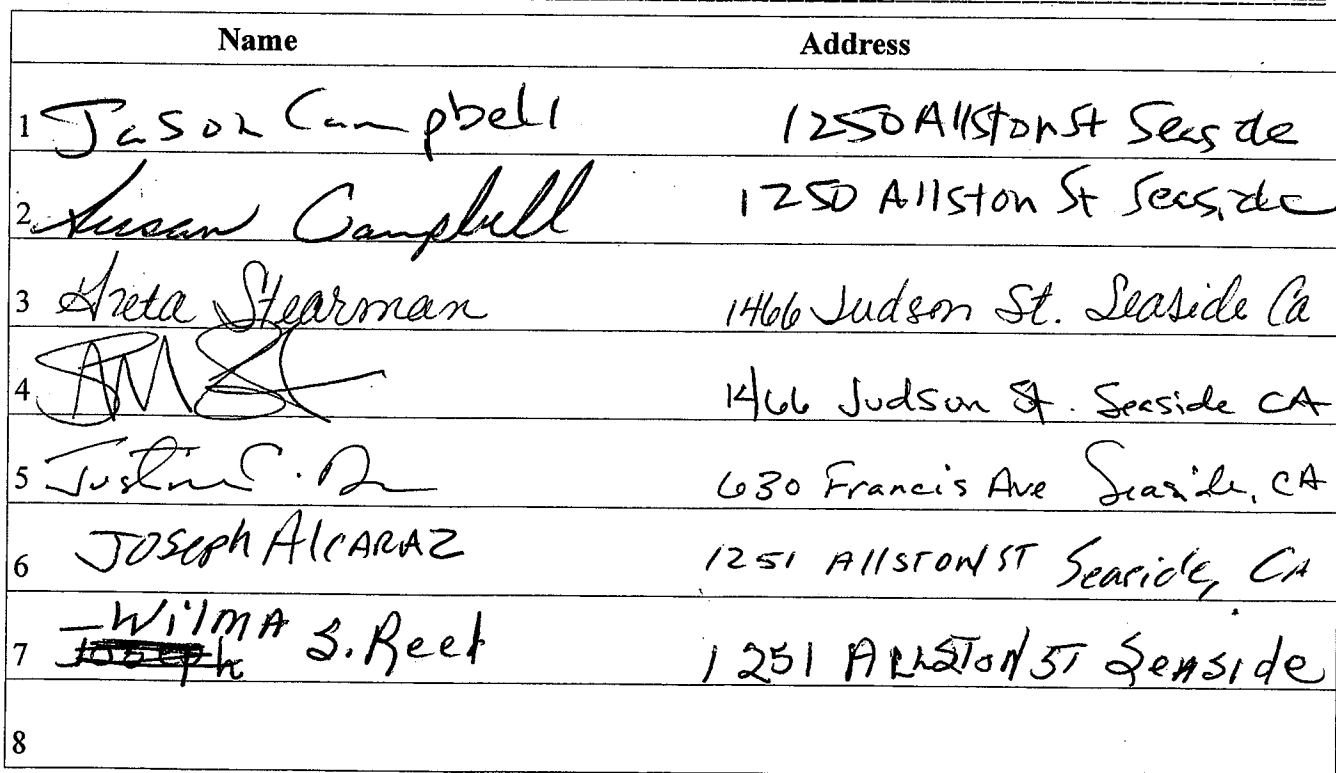 Name Address
1 Jason Campbell 1250 Allston St Seaside
2 Susan Campbell 1250 Allston St Seaside
3 Greta Stearman 1466 Judson St. Seaside Ca
4 1466 Judson St. Seaside CA
5 Justin C. 630 Francis Ave Seaside, CA
6 Joseph AlCARAZ 1251 AllSTON ST Seaside, CA
7 WilmA S. Reed 1251 ALLSTON ST SeASide
8